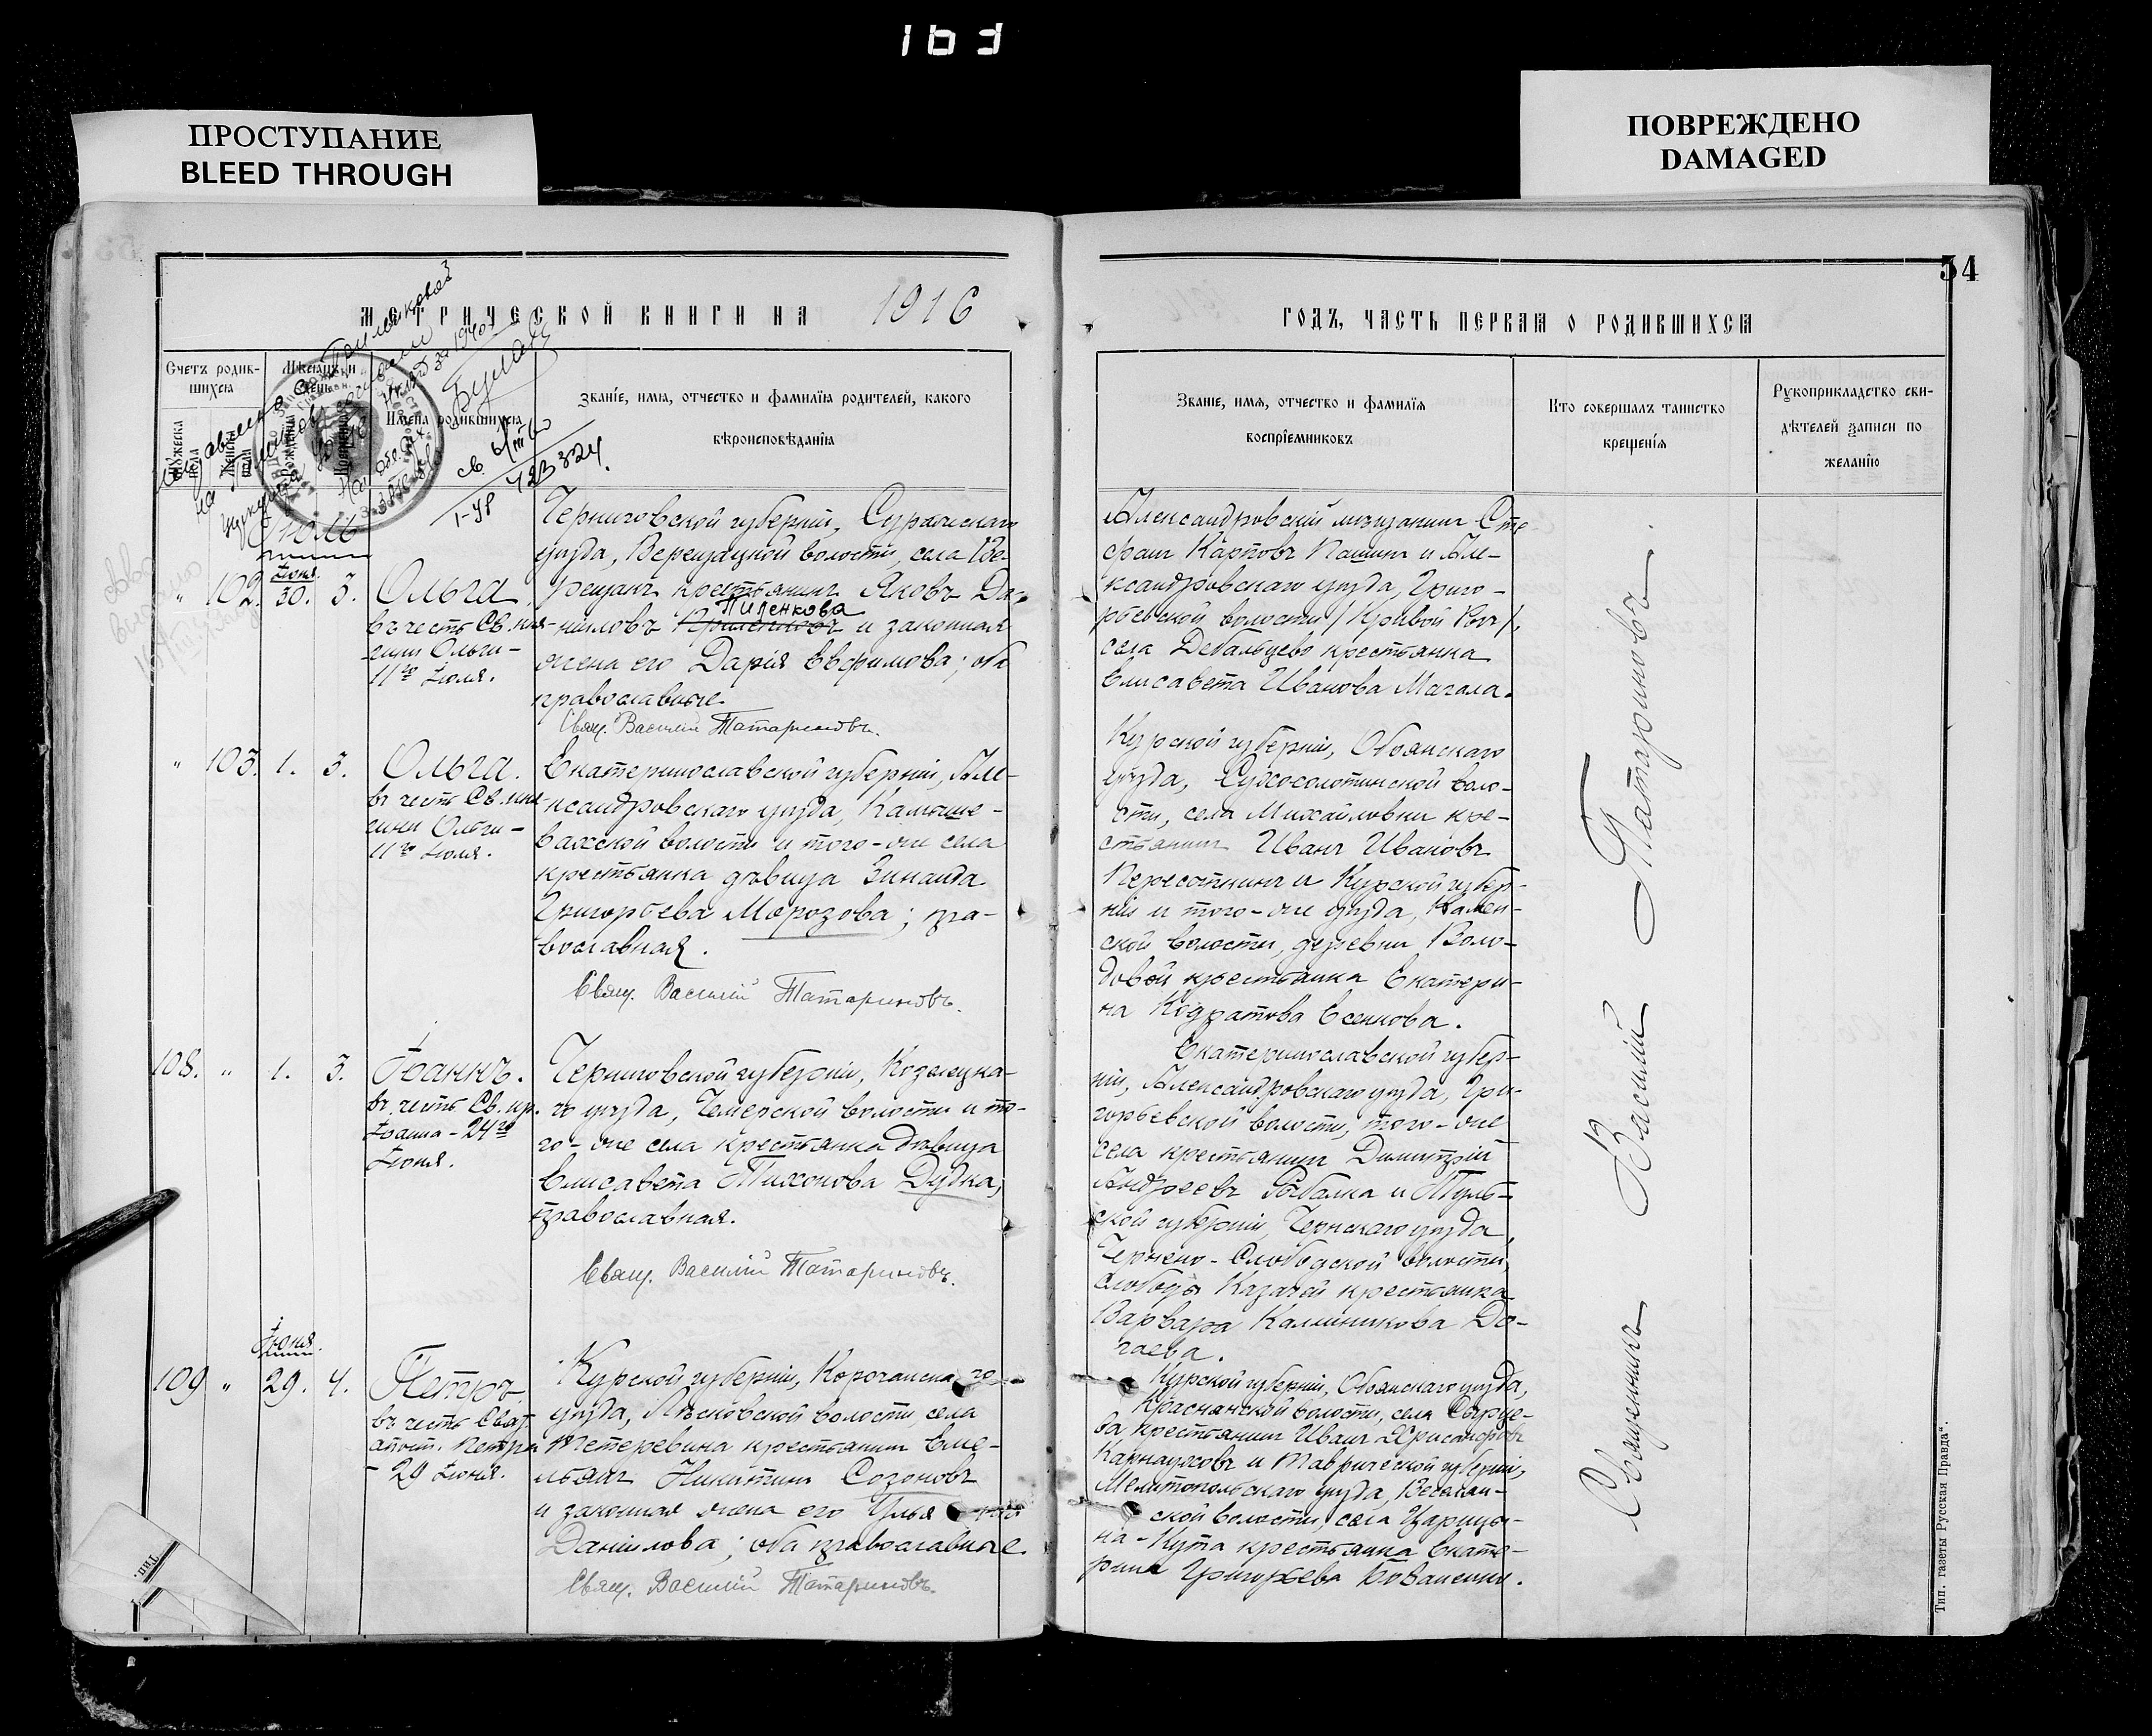 163
ПРОСТУПАНИЕ
BLEED THROUGH
ПОВРЕЖДЕНО
DAMAGED
34
МЕТРИЧЕСКОЙ КНИГИ НА 1916
ГОДЪ, ЧАСТЬ ПЕРВАЯ О РОДИВШИХСЯ
Счетъ родив-
шихся
Мужеска
пола
Женска
пола
Мѣсяцъ и
день
рожденія
крещенія
Имена родившихся
Званіе, имя, отчество и фамилія родителей, какого
вѣроисповѣданія
Званіе, имя, отчество и фамилія
воспріемниковъ
Кто совершалъ таинство
крещенія
Рукоприкладство сви-
дѣтелей записи по
желанію
423324.
Іюль
Іюня.
" 102. 30. 3. Ольга
въ честь Св. кня-
гини Ольги -
11го Іюля.
Черниговской губерніи, Суражскаго
уѣзда, Верещацкой волости, села Ве-
рещакъ крестьянинъ Яковъ Да-
Пиленкова
ниловъ и законная
жена его Дарія Евфимова; оба
православные.
Свящ. Василій Татариновъ.
Александровскій мѣщанинъ Сте-
фанъ Карповъ Пашинъ и Але-
ксандровскаго уѣзда, Григо-
рьевской волости /Кривой Рогъ/,
села Дебальцево крестьянка
Елисавета Иванова Магала.
" 103. 1. 3. Ольга.
въ честь Св. кня-
гини Ольги -
11го Іюля.
Екатеринославской губерніи, Але-
ксандровскаго уѣзда, Камыше-
вахской волости и того-же села
крестьянка дѣвица Зинаида
Григорьева Морозова; пра-
вославная.
Свящ. Василій Татариновъ.
Курской губерніи, Обоянскаго
уѣзда, Сухосолотинской воло-
сти, села Михайловки кре-
стьянинъ Иванъ Ивановъ
Пересыпкинъ и Курской губер-
ніи и того-же уѣзда, Камен-
ской волости, деревни Воло-
довой крестьянка Екатери-
на Кодратова Есенкова.
108. " 1. 3. Іоаннъ.
въ честь Св. пр.
Іоанна - 24го
Іюня.
Черниговской губерніи, Козелецка-
го уѣзда, Чемерской волости и то-
го-же села крестьянка дѣвица
Елисавета Тихонова Дудка,
православная.
Свящ. Василій Татариновъ.
Екатеринославской губер-
ніи, Александровскаго уѣзда, Гри-
горьевской волости, того-же
села крестьянинъ Димитрій
Андреевъ Рыбалка и Туль-
ской губерніи, Чернскаго уѣзда,
Чернено-Слободской волости,
слободы Казачей крестьянка
Варвара Калинникова До-
гаева.
Іюня.
109 " 29. 4. Петръ
въ честь Свят.
апост. Петра
- 29 Іюня.
Курской губерніи, Корочанскаго
уѣзда, Лѣсковской волости, села
Тетеревина крестьянинъ Еме-
льянъ Никитинъ Созоновъ
и законная жена его Улья
Даніилова; оба православные.
Свящ. Василій Татариновъ.
Курской губерніи, Обоянскаго уѣзда,
Краснянской волости, села Сырце-
ва, крестьянинъ Иванъ Хрисанфовъ
Карнауховъ и Таврической губерніи,
Мелитопольскаго уѣзда, Веселян-
ской волости, села Царицы-
на-Кута крестьянка Екате-
рина Григорьева Бованенко.
Священникъ Василій Татариновъ
Тип. газеты „Русская Правда“.